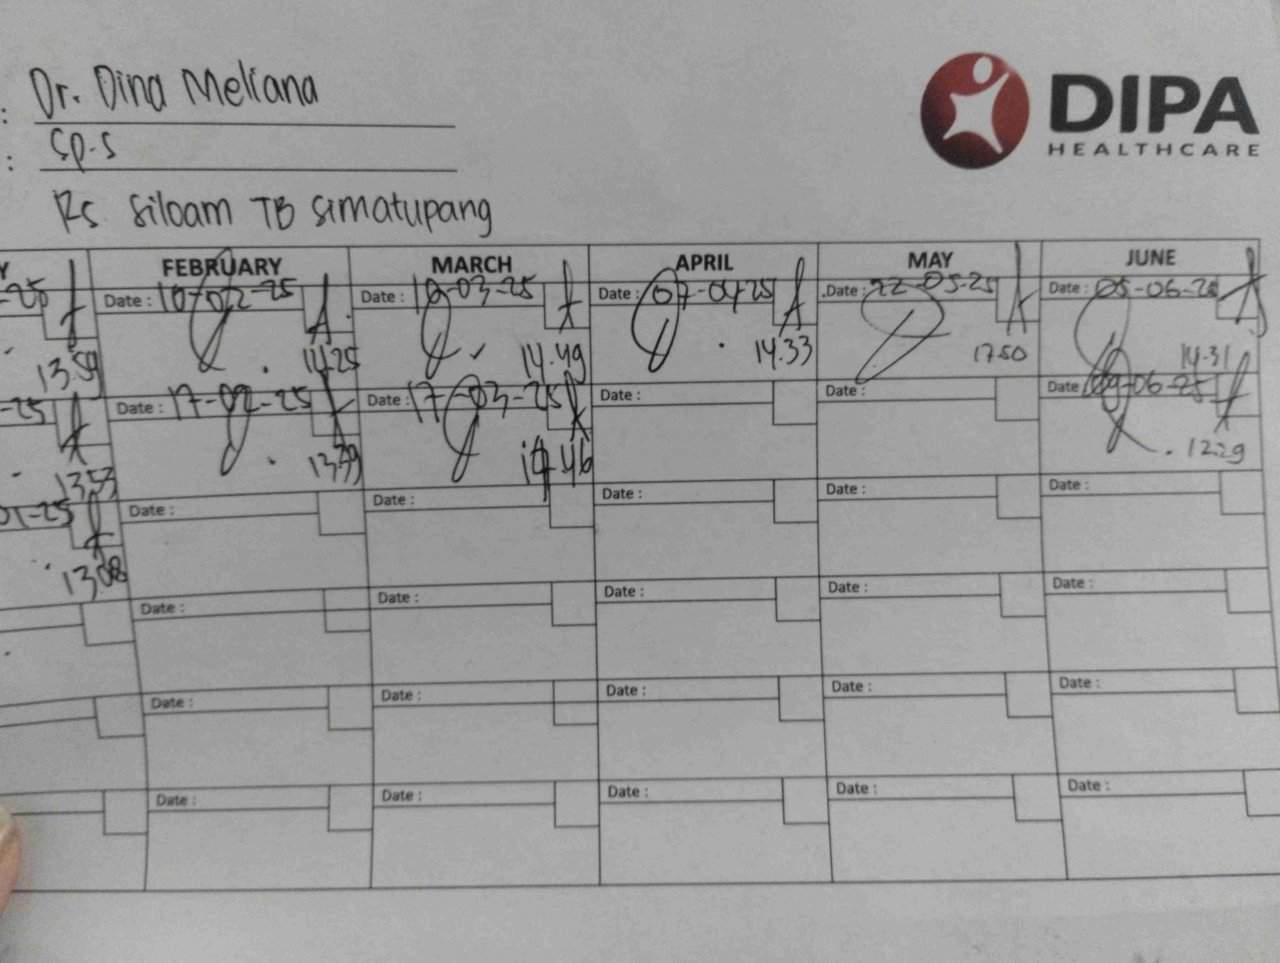 : Dr. Dina Meliana
: Sp.S
Rs Siloam TB Simatupang
DIPA
HEALTHCARE
Y FEBRUARY MARCH APRIL MAY JUNE
-25 Date : 10-02-25 Date : 10-03-25 Date : 07-04-25 Date : 22-05-25 Date : 05-06-25
13.59 14.25 14.49 14.33 17.50 14.31
-25 Date : 17-02-25 Date : 17-03-25 Date : Date : Date : 09-06-25
13.53 13.39 14.46 12.29
01-25 Date : Date : Date : Date : Date :
13.08
Date : Date : Date : Date : Date :
Date : Date : Date : Date : Date :
Date : Date : Date : Date : Date :